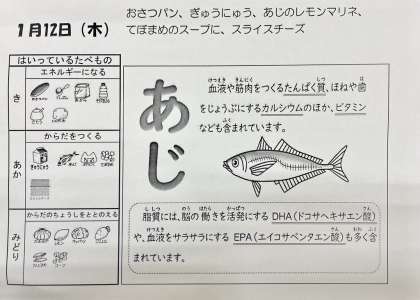 1月12日（木）
おさつパン、ぎゅうにゅう、あじのレモンマリネ、
てぼまめのスープに、スライスチーズ
はいっているたべもの
エネルギーになる
き
からだをつくる
あか
ぎゅうにゅう
からだのちょうしをととのえる
みどり
あじ
血液や筋肉をつくるたんぱく質、ほねや歯
をじょうぶにするカルシウムのほか、ビタミン
なども含まれています。
脂質には、脳の働きを活発にする DHA（ドコサヘキサエン酸）
や、血液をサラサラにする EPA（エイコサペンタエン酸）も多く含
まれています。